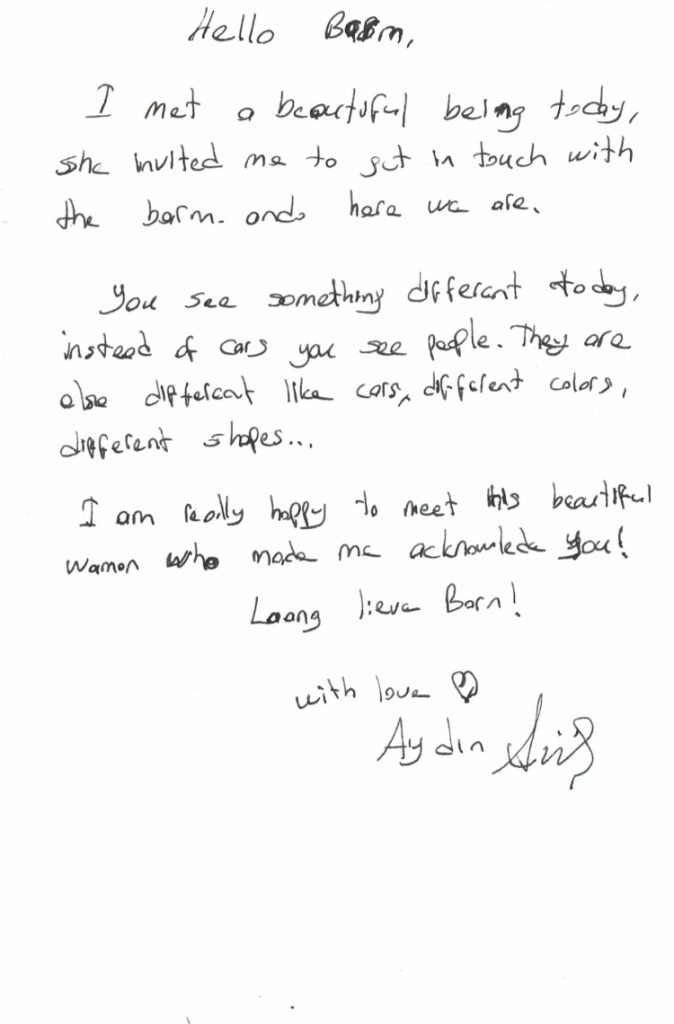 Hello Barm,
I met a beautiful being today,
she invited me to get in touch with
the barm. and here we are.
You see something different today,
instead of cars you see people. They are
else different like cars, different colors,
different shapes...
I am really happy to meet this beautiful
wamon who made me acknowlede you!
Loong lieve Barn!
with love
Aydın